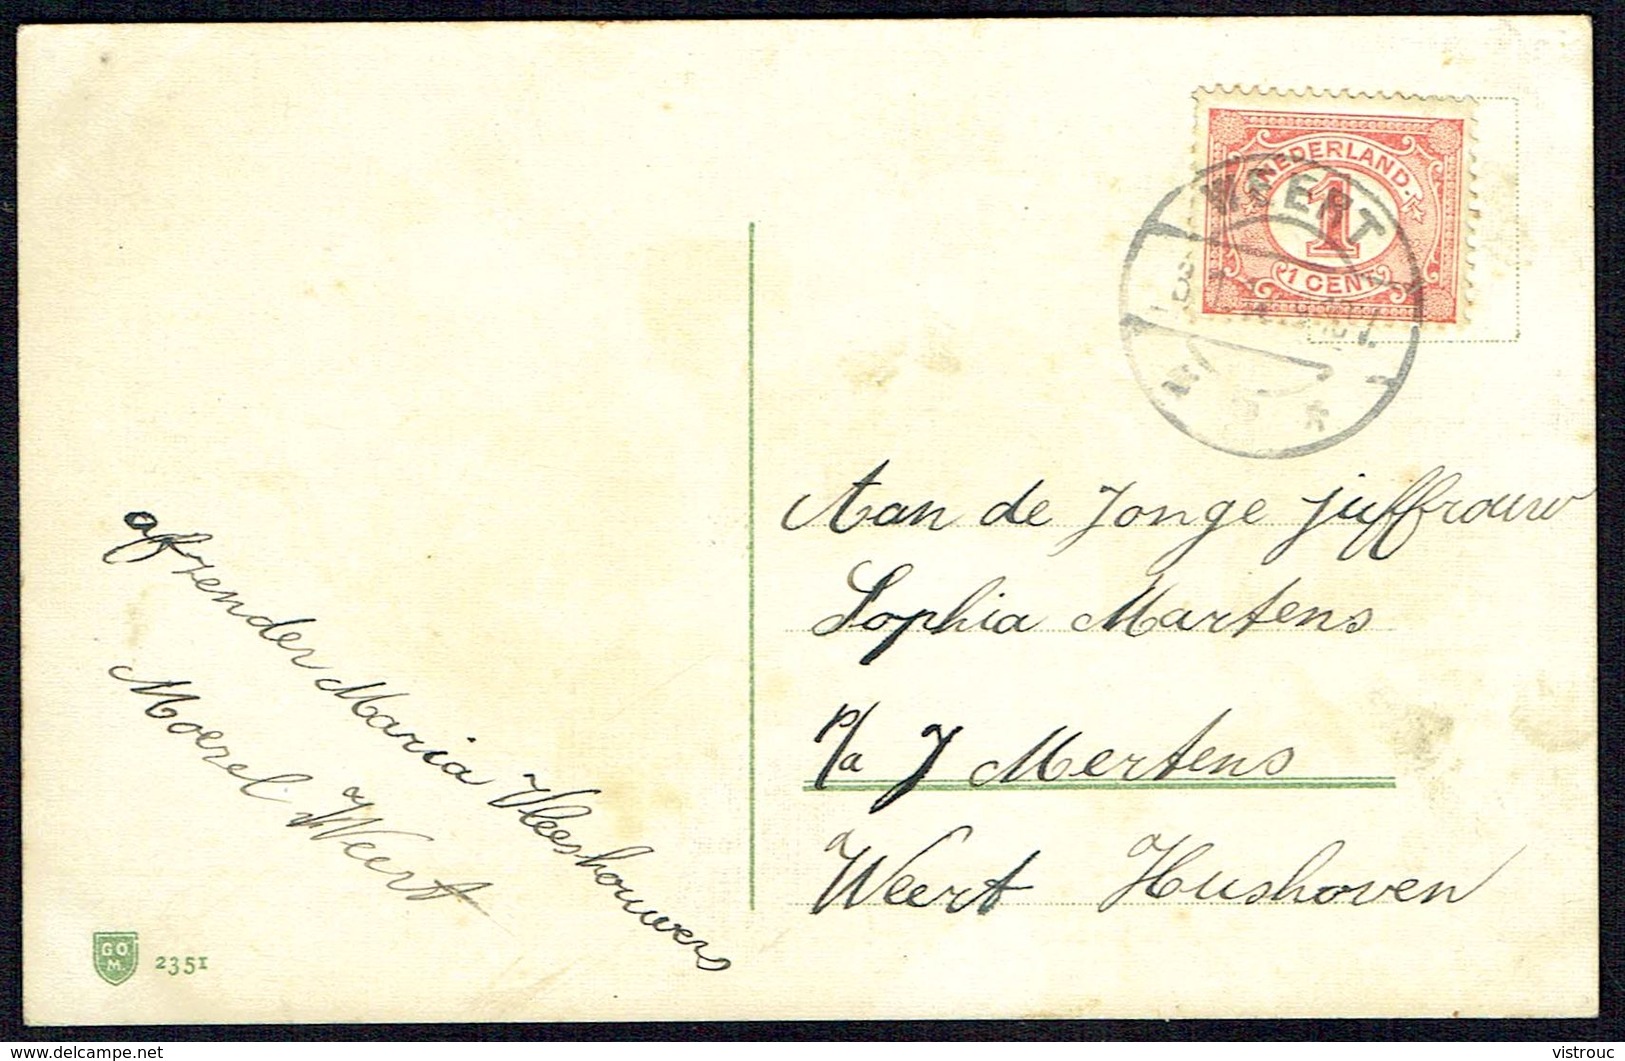 NEDERLAND
1
1 CENT
WEERT
afzender Maria Vleeshouwers
Moesel Weert
Aan de Jonge juffrouw
Sophia Martens
p/a J Mertens
Weert Hushoven
G O.
M.
2351
delcampe.net
vistrouc